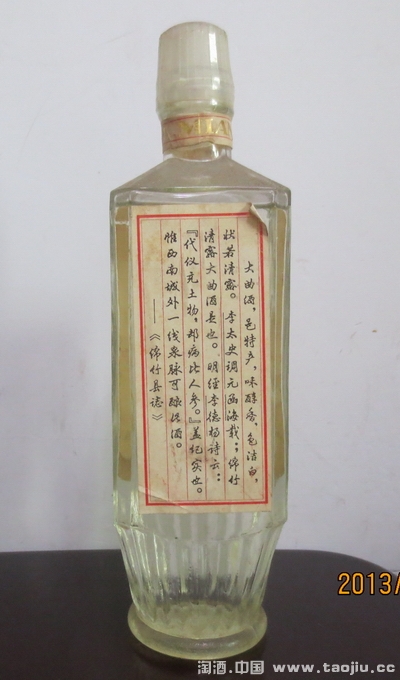 大曲酒，邑特产，味醇香，色洁白，
状若清露。李太史调元函海载：绵竹
清露大曲酒是也。明经李德扬诗云：
『代仪充土物，却病比人参。』盖纪实也。
惟西南城外一线泉脉可酿此酒。
——《绵竹县志》
2013/
淘酒.中国 www.taojiu.cc